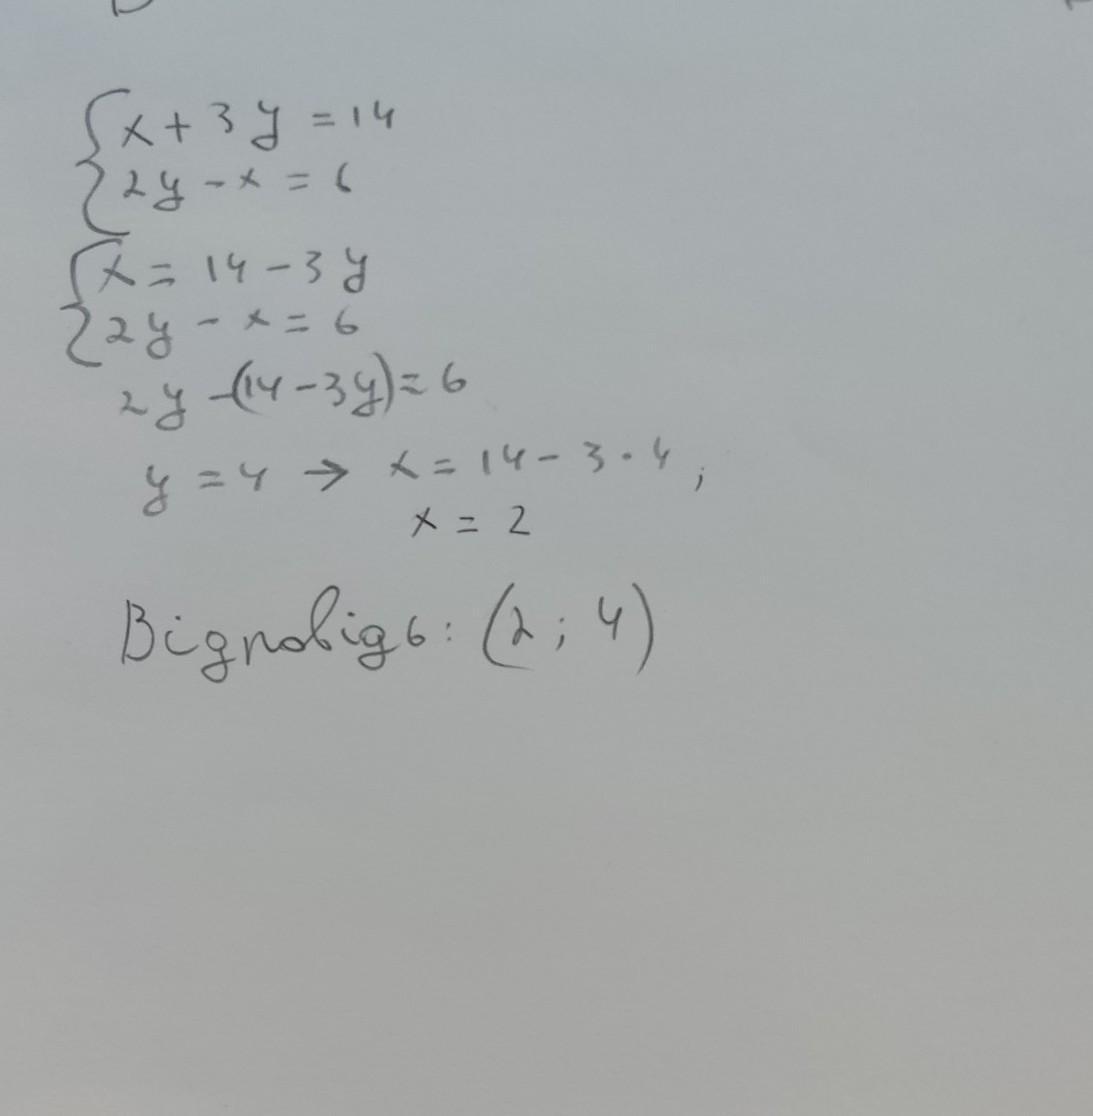 {x + 3y = 14
{2y - x = 6
{x = 14 - 3y
{2y - x = 6
2y - (14 - 3y) = 6
y = 4 → x = 14 - 3 · 4 ;
x = 2
Відповідь: (2 ; 4)